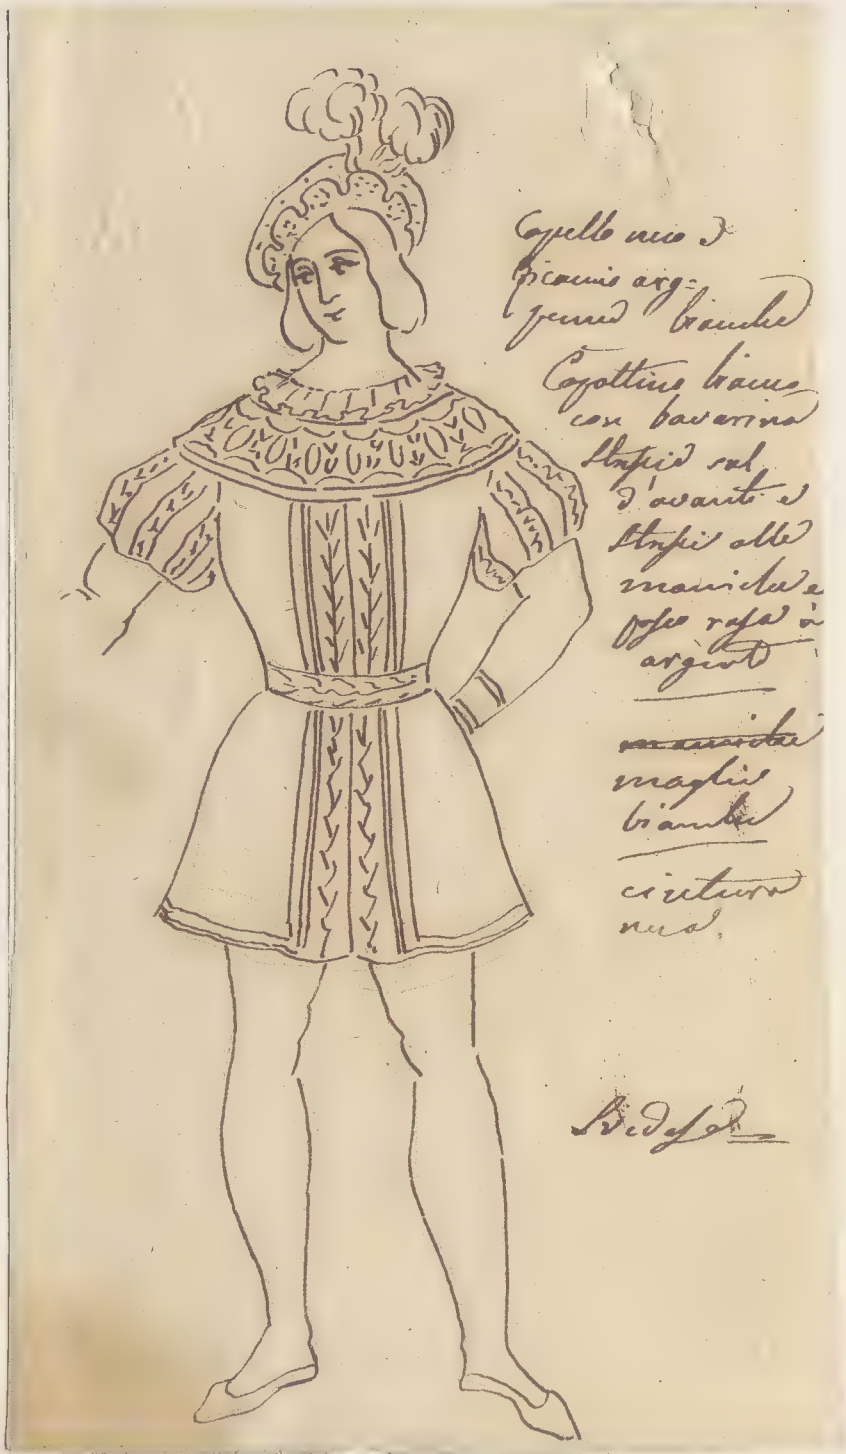 Capello nero e
ricamo arg=
penne bianche
Capottino bianco
con bavarina
strisie sul
d'avanti e
strisie alle
maniche e
rosa à
argent
maniche
maglie
bianche
cintura
nera.